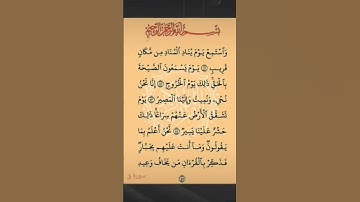 بِسْمِ اللَّهِ الرَّحْمَٰنِ الرَّحِيمِ
وَاسْتَمِعْ يَوْمَ يُنَادِ الْمُنَادِ مِن مَّكَانٍ
قَرِيبٍ ﴿٤١﴾ يَوْمَ يَسْمَعُونَ الصَّيْحَةَ
بِالْحَقِّ ذَٰلِكَ يَوْمُ الْخُرُوجِ ﴿٤٢﴾ إِنَّا نَحْنُ
نُحْيِي وَنُمِيتُ وَإِلَيْنَا الْمَصِيرُ ﴿٤٣﴾ يَوْمَ
تَشَقَّقُ الْأَرْضُ عَنْهُمْ سِرَاعًا ذَٰلِكَ
حَشْرٌ عَلَيْنَا يَسِيرٌ ﴿٤٤﴾ نَّحْنُ أَعْلَمُ بِمَا
يَقُولُونَ وَمَا أَنتَ عَلَيْهِم بِجَبَّارٍ
فَذَكِّرْ بِالْقُرْآنِ مَن يَخَافُ وَعِيدِ
سورة ق